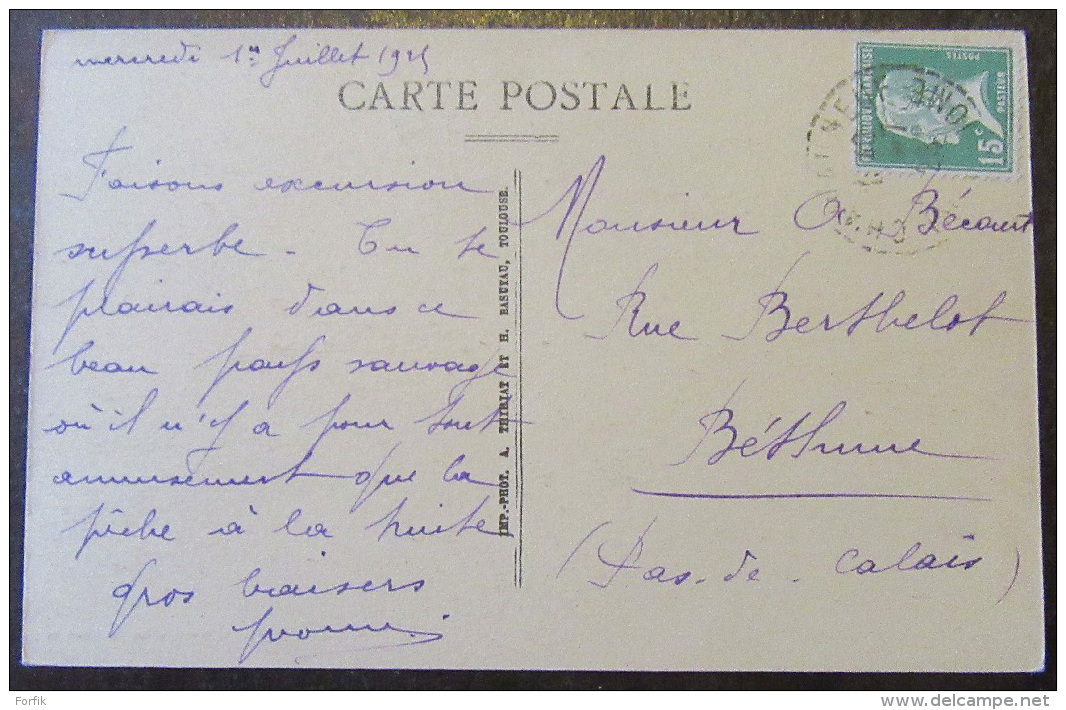 mercredi 1er Juillet 1925
CARTE POSTALE
Faisons excursion
superbe. Tu te
plairais dans ce
beau pays sauvage
où il n'y a pour tout
amusement que la
pêche à la truite
Gros baisers
Yvonne
IMP.-PHOT. A. THIRIAT ET H. BASUYAU, TOULOUSE.
REPUBLIQUE FRANÇAISE
POSTES
PASTEUR
15c
Monsieur Bécourt
Rue Berthelot
Béthune
(Pas-de-Calais)
Forfik
www.delcampe.net